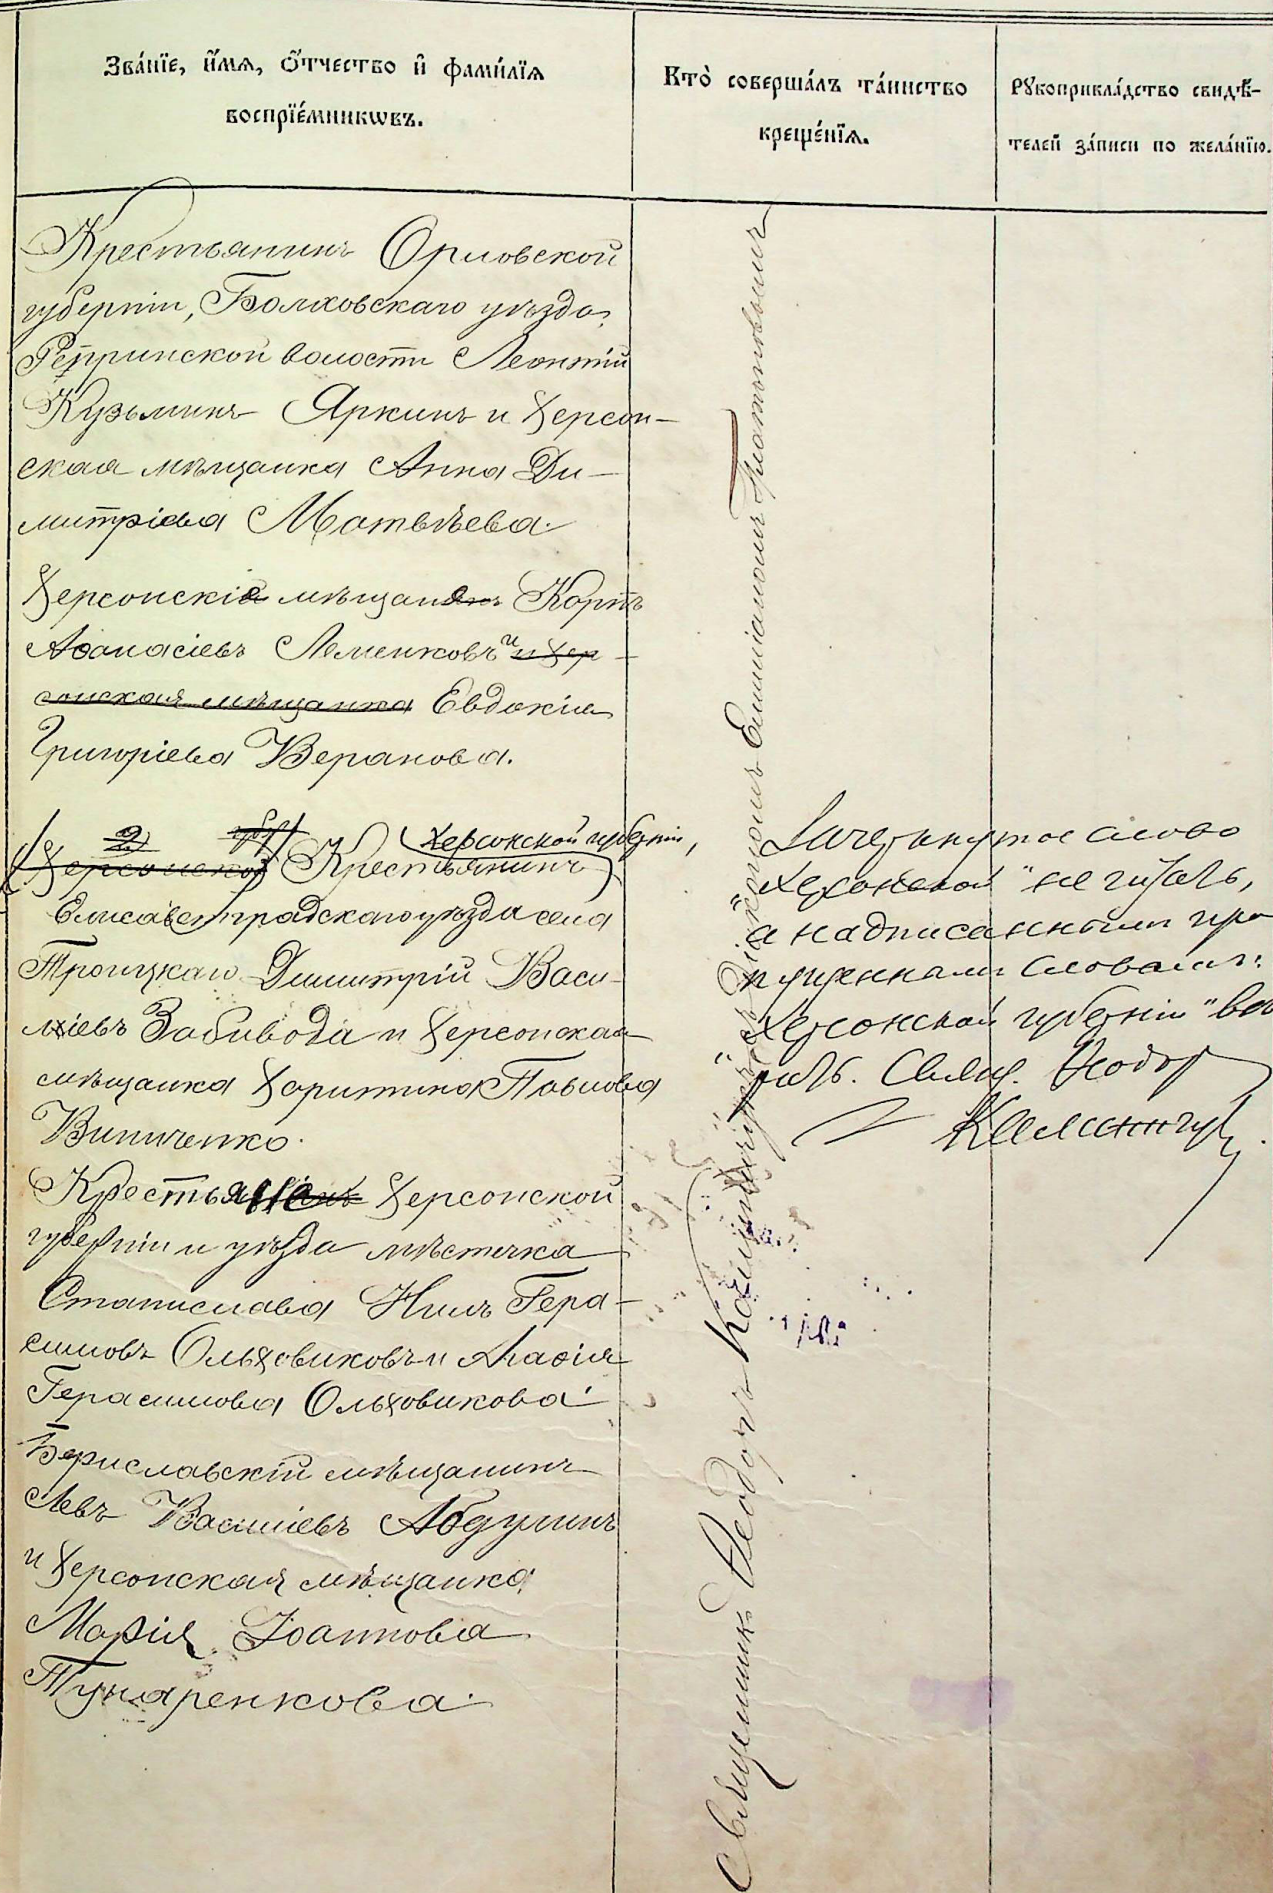 Зва́нїе, и҆́мя, ѻ҆́тчество и҆ фами́лїя
воспрїе́мникѡвъ.
Кто̀ соверша́лъ та́инство
креще́нїя.
Рꙋкоприкла́дство свидѣ́-
телей за́писи по жела́нїю.
Крестьянинъ Орловской
губерніи, Болховскаго уѣзда,
волости Леонтій
Кузьминъ Яркинъ и Херсон-
ская мѣщанка Анна Ди-
митріева Матвѣева.
Херсонскіе мѣщане Корнъ
Аѳанасіевъ Леменковъ и и Хер-
сонская мѣщанка Евдокія
Григоріева Веранова.
Херсонской губерніи,
Херсонской Крестьянинъ
Елисаветградскаго уѣзда села
Троицкаго Димитрій Васи-
ліевъ Забивода и Херсонская
мѣщанка Харитина Павлова
Винниченко.
Крестьяне Херсонской
губерніи и уѣзда мѣстечка
Станислава Нилъ Гера-
симовъ Ольховиковъ и Агафія
Герасимова Ольховикова.
Бериславскій мѣщанинъ
Левъ Василіевъ Абдулинъ
и Херсонская мѣщанка
Марія Іоаннова
Священникъ Ѳеодоръ діакономъ Емиліаномъ
Зачеркнутое слово
„Херсонской" не читать,
а надписаннымъ про-
пущеннымъ словамъ:
„Херсонской губерніи" вѣ-
рить. Свящ. Ѳеодор